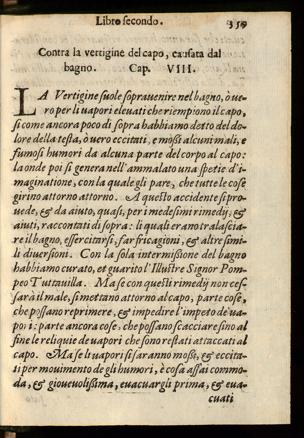 Libro secondo. 359
Contra la vertigine del capo, causata dal
bagno. Cap. VIII.
LA Vertigine suole sopravenire nel bagno, ò ue-
ro per li uapori eleuati che riempiono il capo,
si come ancora poco di sopra habbiamo detto del do-
lore della testa, ò uero eccitati, e mossi alcuni mali, e
fumosi humori da alcuna parte del corpo al capo:
la onde poi si genera nell'ammalato una spetie d'i-
maginatione, con la quale gli pare, che tutte le cose
girino attorno attorno. A questo accidente si pro-
uede, & da aiuto, quasi, per i medesimi rimedij, &
aiuti, raccontati di sopra: li quali erano tralascia-
re il bagno, essercitarsi, far fricagioni, & altre simi-
li diuersioni. Con la sola intermissione del bagno
habbiamo curato, et guarito l'Illustre Signor Pom-
peo Tuttauilla. Ma se con questi rimedij non ces-
sarà il male, si mettano attorno al capo, parte cose,
che possano reprimere, & impedire l'impeto de ua-
pori: parte ancora cose, che possano scacciare sino al
fine le reliquie de uapori che sono restati attaccati al
capo. Ma se li uapori si saranno mossi, & eccita-
ti per mouimento de gli humori, è cosa assai commo-
da, & gioueuolissima, euacuargli prima, & eua-
cuati